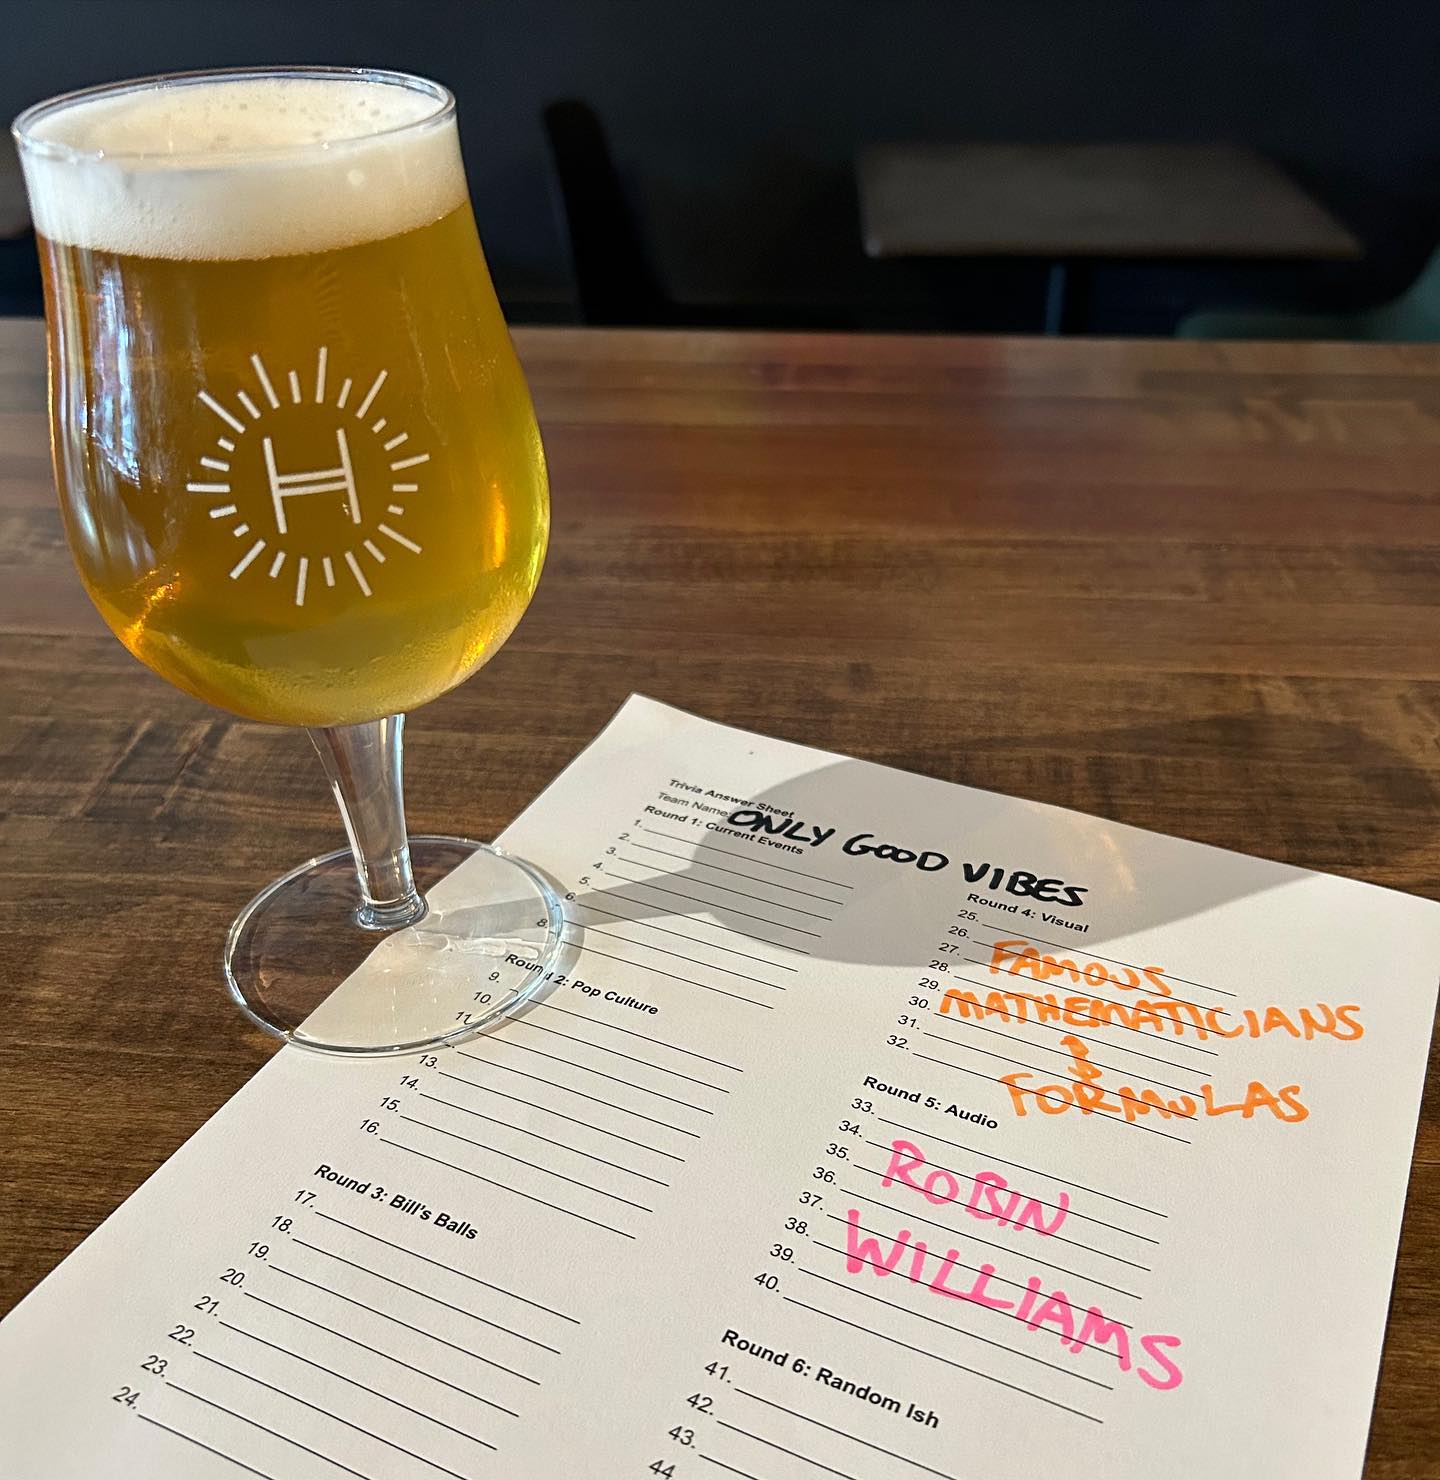 H
Trivia Answer Sheet
Team Name: ONLY GOOD VIBES
Round 1: Current Events
1.
2.
3.
4.
5.
6.
8.
Round 2: Pop Culture
9.
10.
11.
13.
14.
15.
16.
Round 3: Bill's Balls
17.
18.
19.
20.
21.
22.
23.
24.
Round 4: Visual
25.
26.
27.
28.
29.
30.
31.
32.
FAMOUS
MATHEMATICIANS
&
FORMULAS
Round 5: Audio
33.
34.
35.
36.
37.
38.
39.
40.
ROBIN
WILLIAMS
Round 6: Random Ish
41.
42.
43.
44